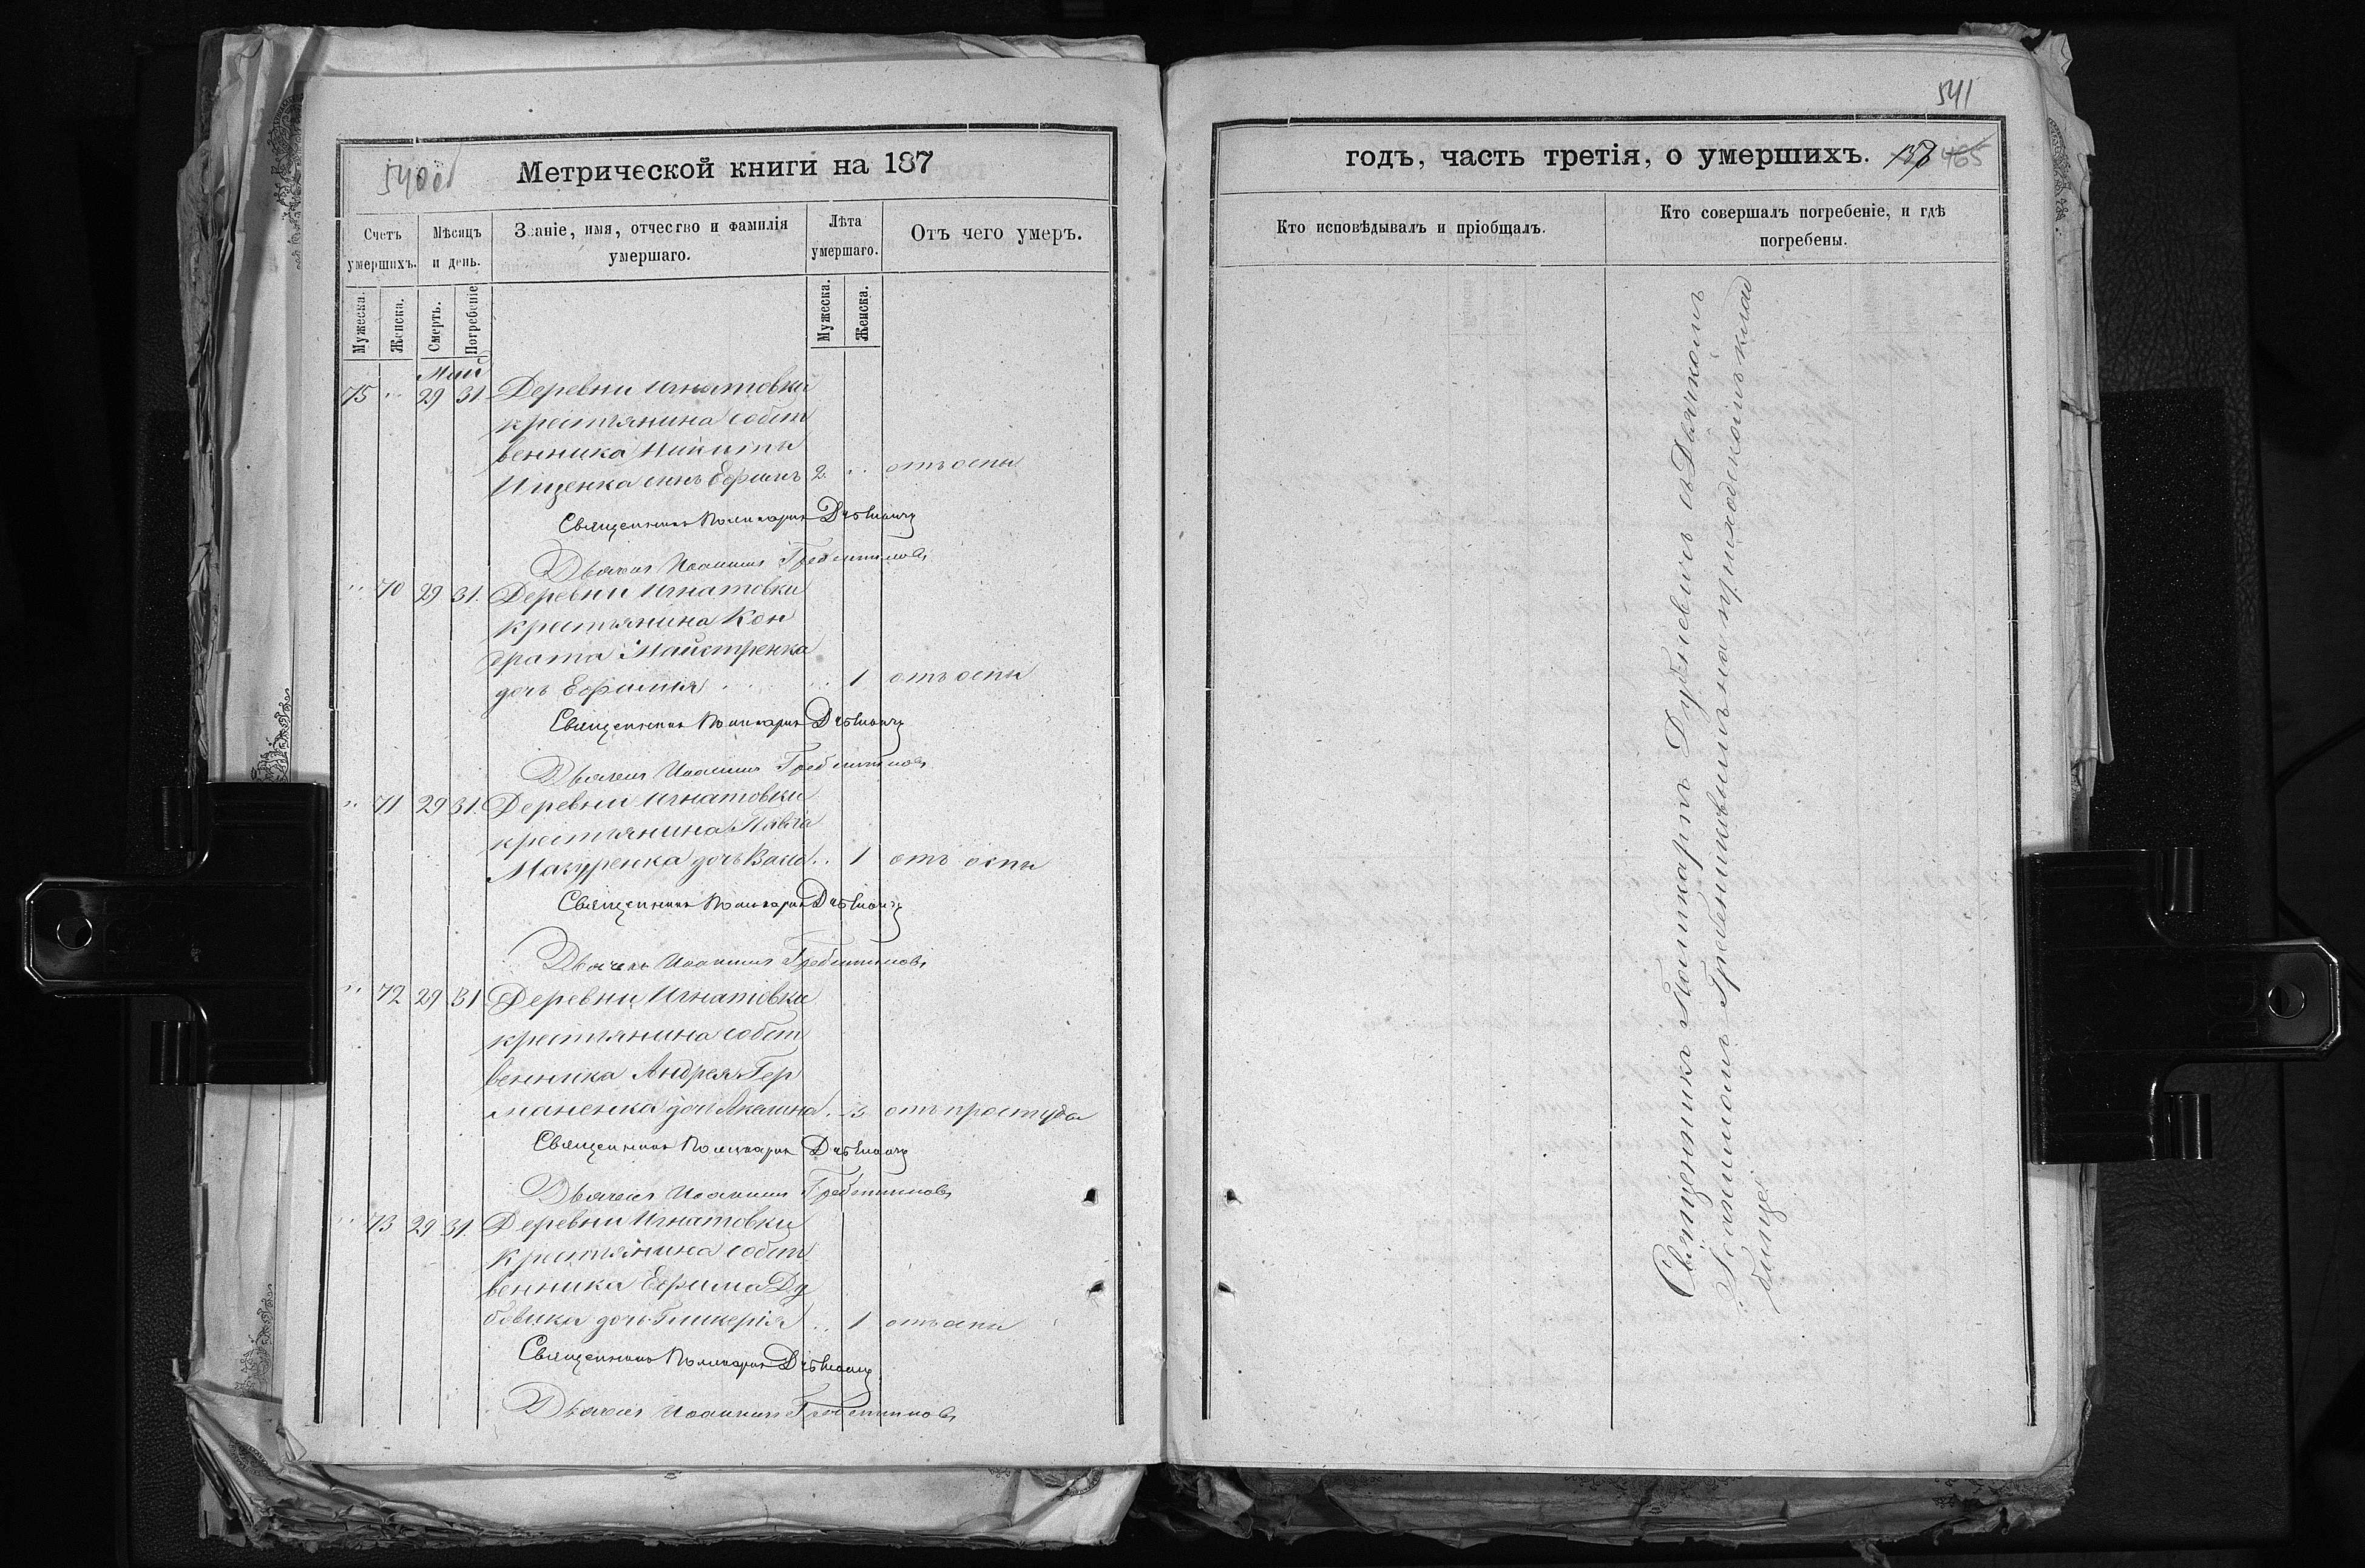 540об
Метрической книги на 187
Счетъ умершихъ.
Мѣсяцъ и день.
Званіе, имя, отчество и фамилія умершаго.
Лѣта умершаго.
Отъ чего умеръ.
Мужеска.
Женска.
Смерть.
Погребеніе
Мужеска.
Женска.
Май
75 " 29 31 Деревни Игнатовки
крестьянина собст
венника Никиты
Ищенка сынъ Ефимъ 2 " отъ оспы
Священникъ Поликарпъ Дубневичъ
Дьячекъ Иоакимъ
" 70 29 31. Деревни Игнатовки
крестьянина Кон
драта Майстренка
дочь Ефимія " 1 отъ оспы
Священникъ Поликарпъ Дубневичъ
Дьячекъ Иоакимъ
" 71 29 31. Деревни Игнатовки
крестьянина Павла
Мазуренка дочь Васса " 1 отъ оспы
Священникъ Поликарпъ Дубневичъ
Дьячекъ Иоакимъ
" 72 29 31 Деревни Игнатовки
крестьянина собст
венника Андрея Гер
маненка дочь Акилина " 3 отъ простуды
Священникъ Поликарпъ Дубневичъ
Дьячекъ Иоакимъ
" 73 29 31. Деревни Игнатовки
крестьянина собст
венника Ефима Ду
бовика дочь Гликерія " 1 отъ оспы
Священникъ Поликарпъ Дубневичъ
Дьячекъ Иоакимъ
541
годъ, часть третія, о умершихъ. 465
Кто исповѣдывалъ и пріобщалъ.
Кто совершалъ погребеніе, и гдѣ погребены.
Священникъ Поликарпъ Дубневичъ съ Дьячкомъ
Іоакимомъ Гребенниковымъ на приходскомъ клад
бищѣ